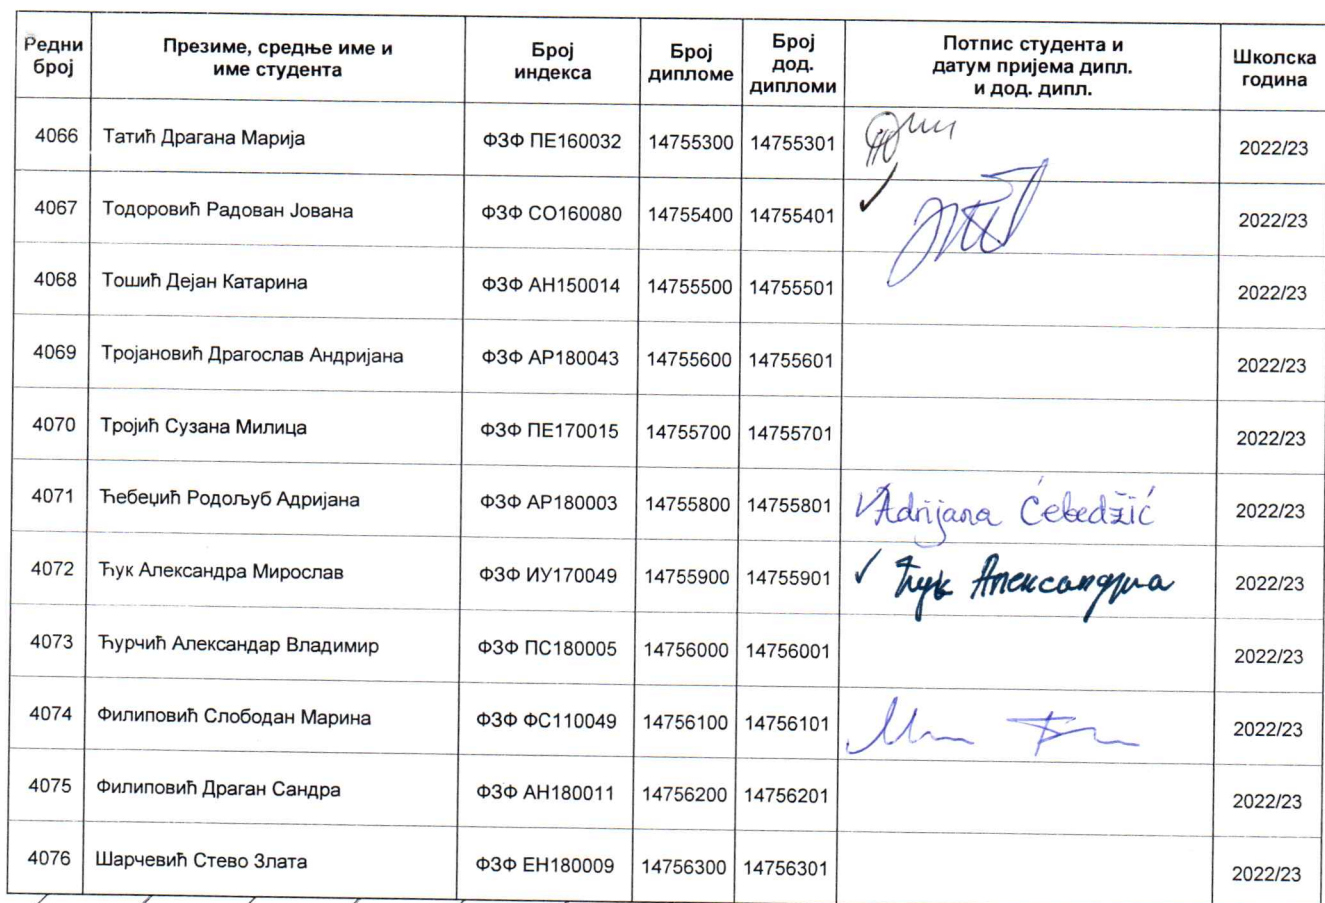 Редни број Презиме, средње име и име студента Број индекса Број дипломе Број дод. дипломи Потпис студента и датум пријема дипл. и дод. дипл. Школска година
4066 Татић Драгана Марија ФЗФ ПЕ160032 14755300 14755301 2022/23
4067 Тодоровић Радован Јована ФЗФ СО160080 14755400 14755401 2022/23
4068 Тошић Дејан Катарина ФЗФ АН150014 14755500 14755501 2022/23
4069 Тројановић Драгослав Андријана ФЗФ АР180043 14755600 14755601 2022/23
4070 Тројић Сузана Милица ФЗФ ПЕ170015 14755700 14755701 2022/23
4071 Ћебеџић Родољуб Адријана ФЗФ АР180003 14755800 14755801 Adrijana Ćebedžić 2022/23
4072 Ћук Александра Мирослав ФЗФ ИУ170049 14755900 14755901 Ћук Александра 2022/23
4073 Ћурчић Александар Владимир ФЗФ ПС180005 14756000 14756001 2022/23
4074 Филиповић Слободан Марина ФЗФ ФС110049 14756100 14756101 2022/23
4075 Филиповић Драган Сандра ФЗФ АН180011 14756200 14756201 2022/23
4076 Шарчевић Стево Злата ФЗФ ЕН180009 14756300 14756301 2022/23